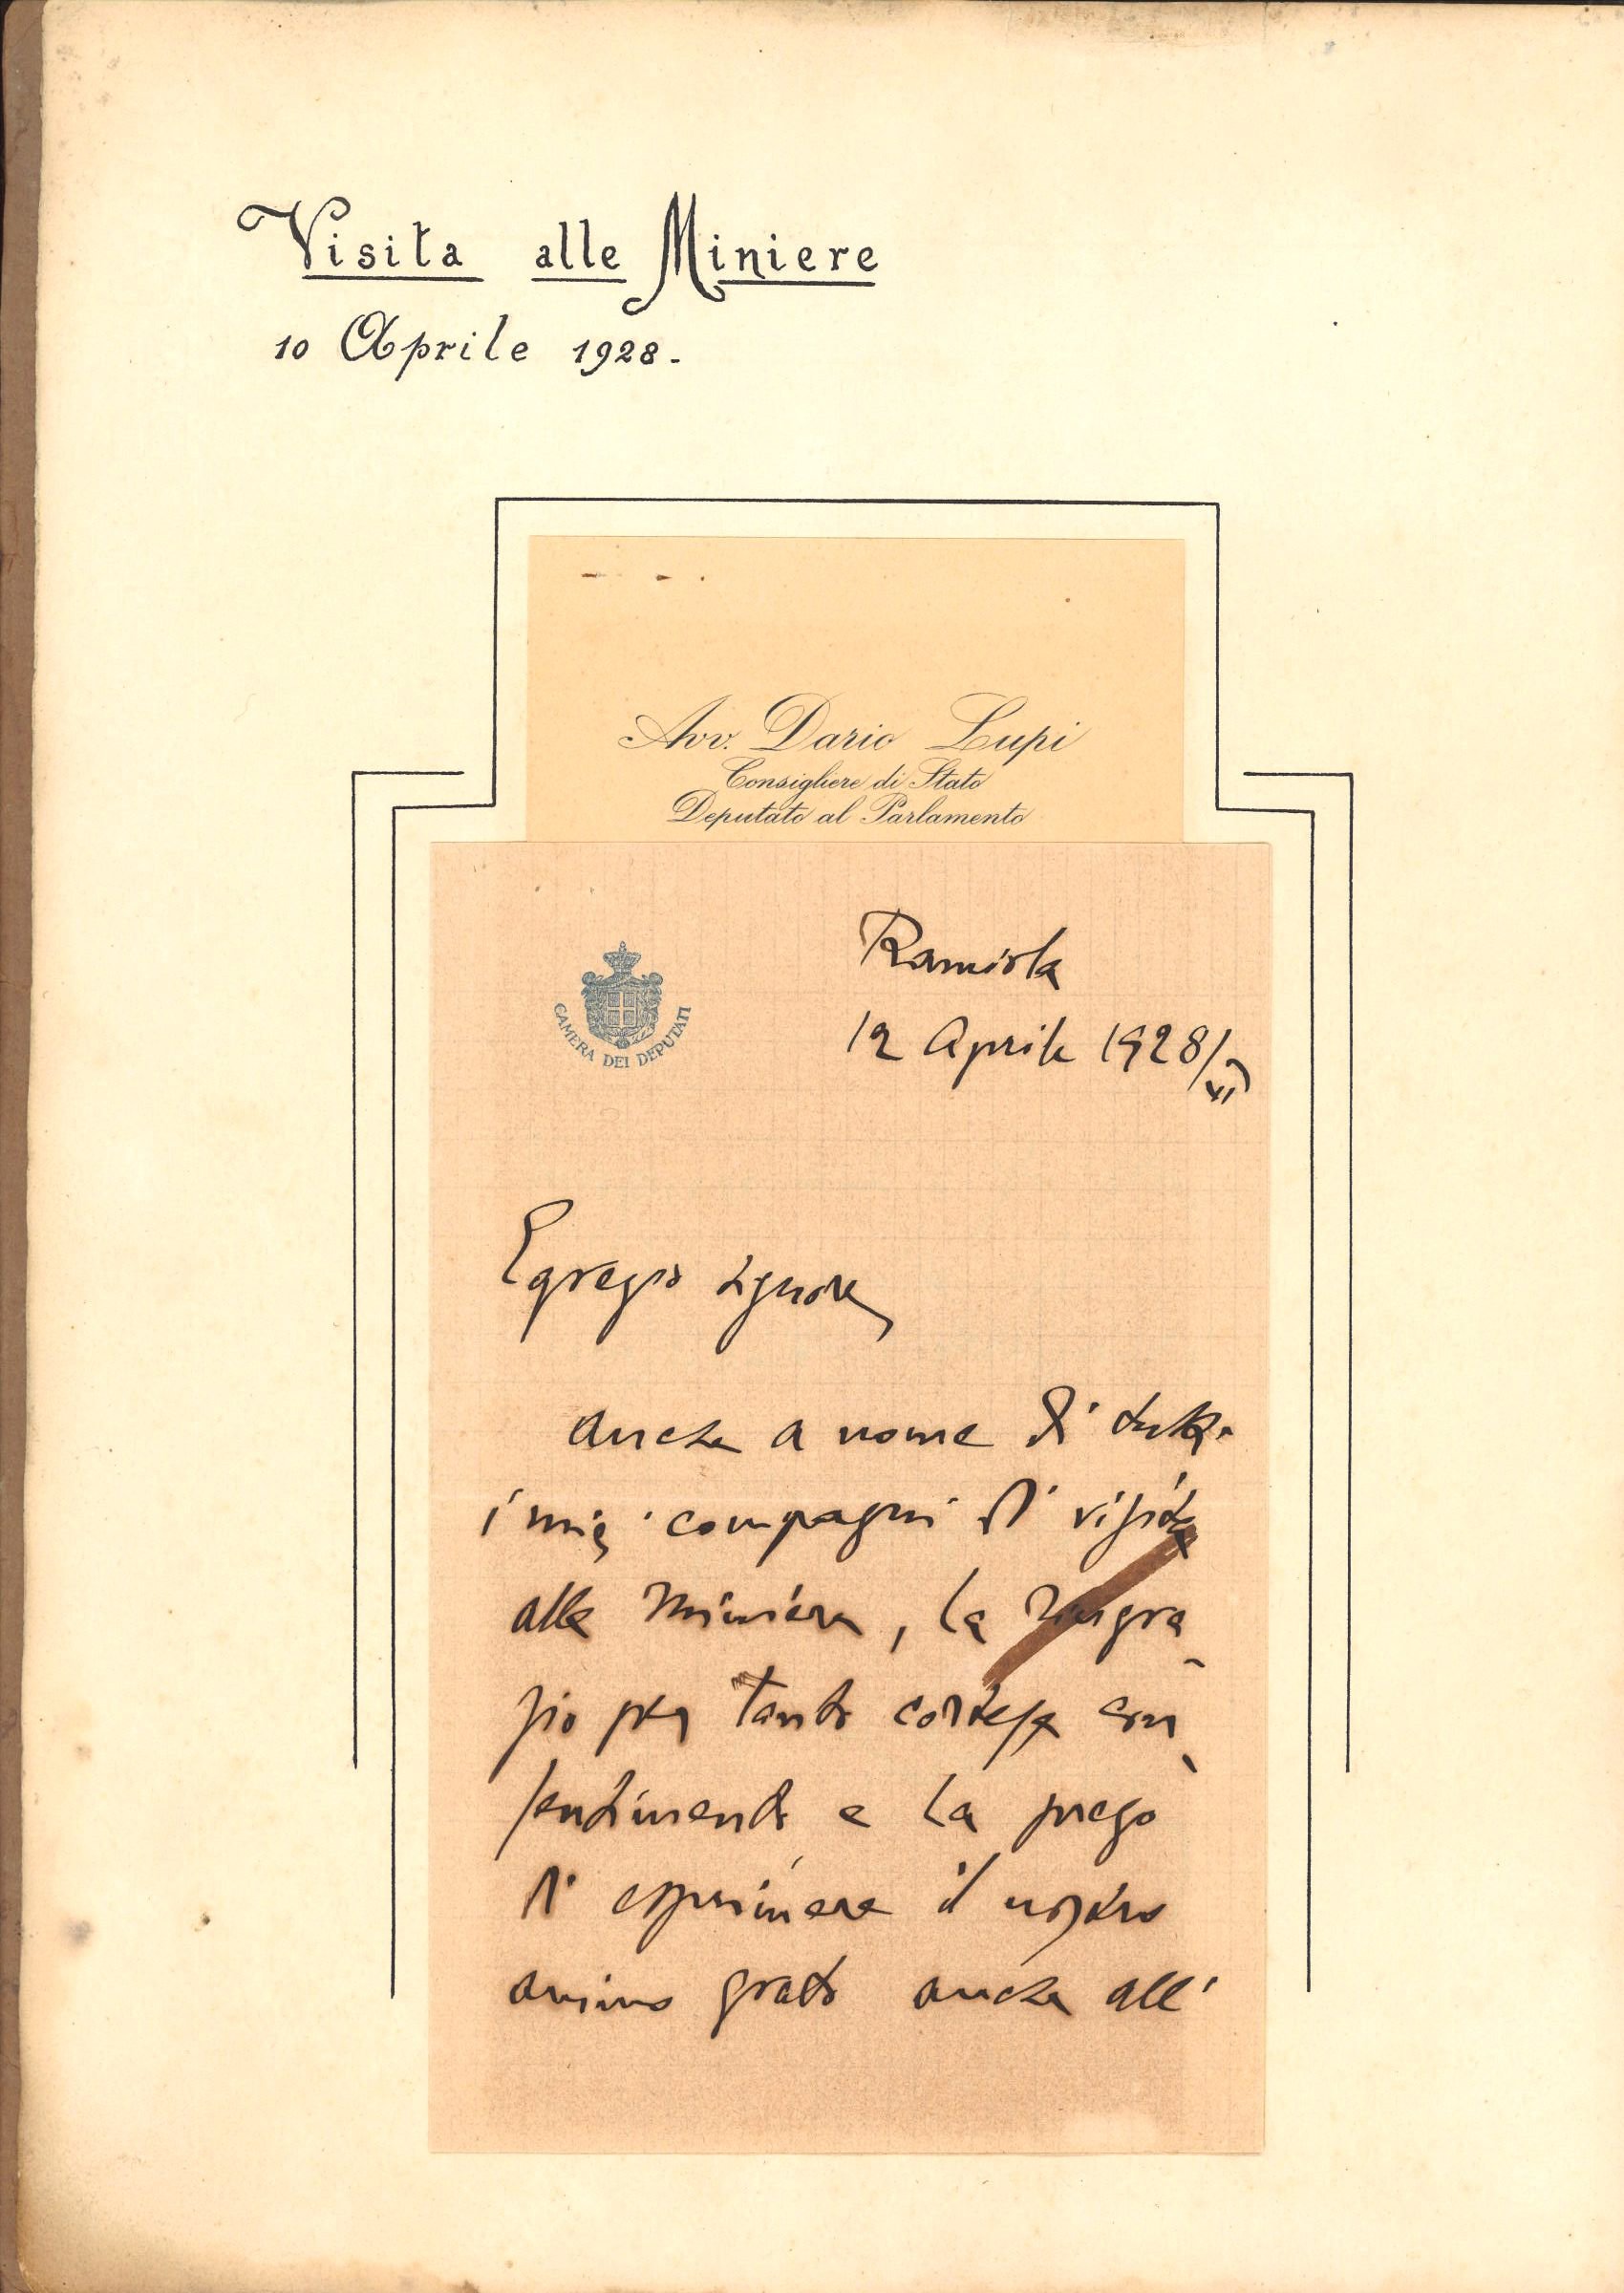 Visita alle Miniere
10 Aprile 1928.
Avv. Dario Lupi
Consigliere di Stato
Deputato al Parlamento
CAMERA DEI DEPUTATI
Ramiola
12 Aprile 1928/VI
Egregio signore,
anche a nome di tutti
i miei compagni di visita
alle Miniere, la ringra-
zio per tanto cortese con-
sentimento e la prego
di esprimere il nostro
animo grato anche all'